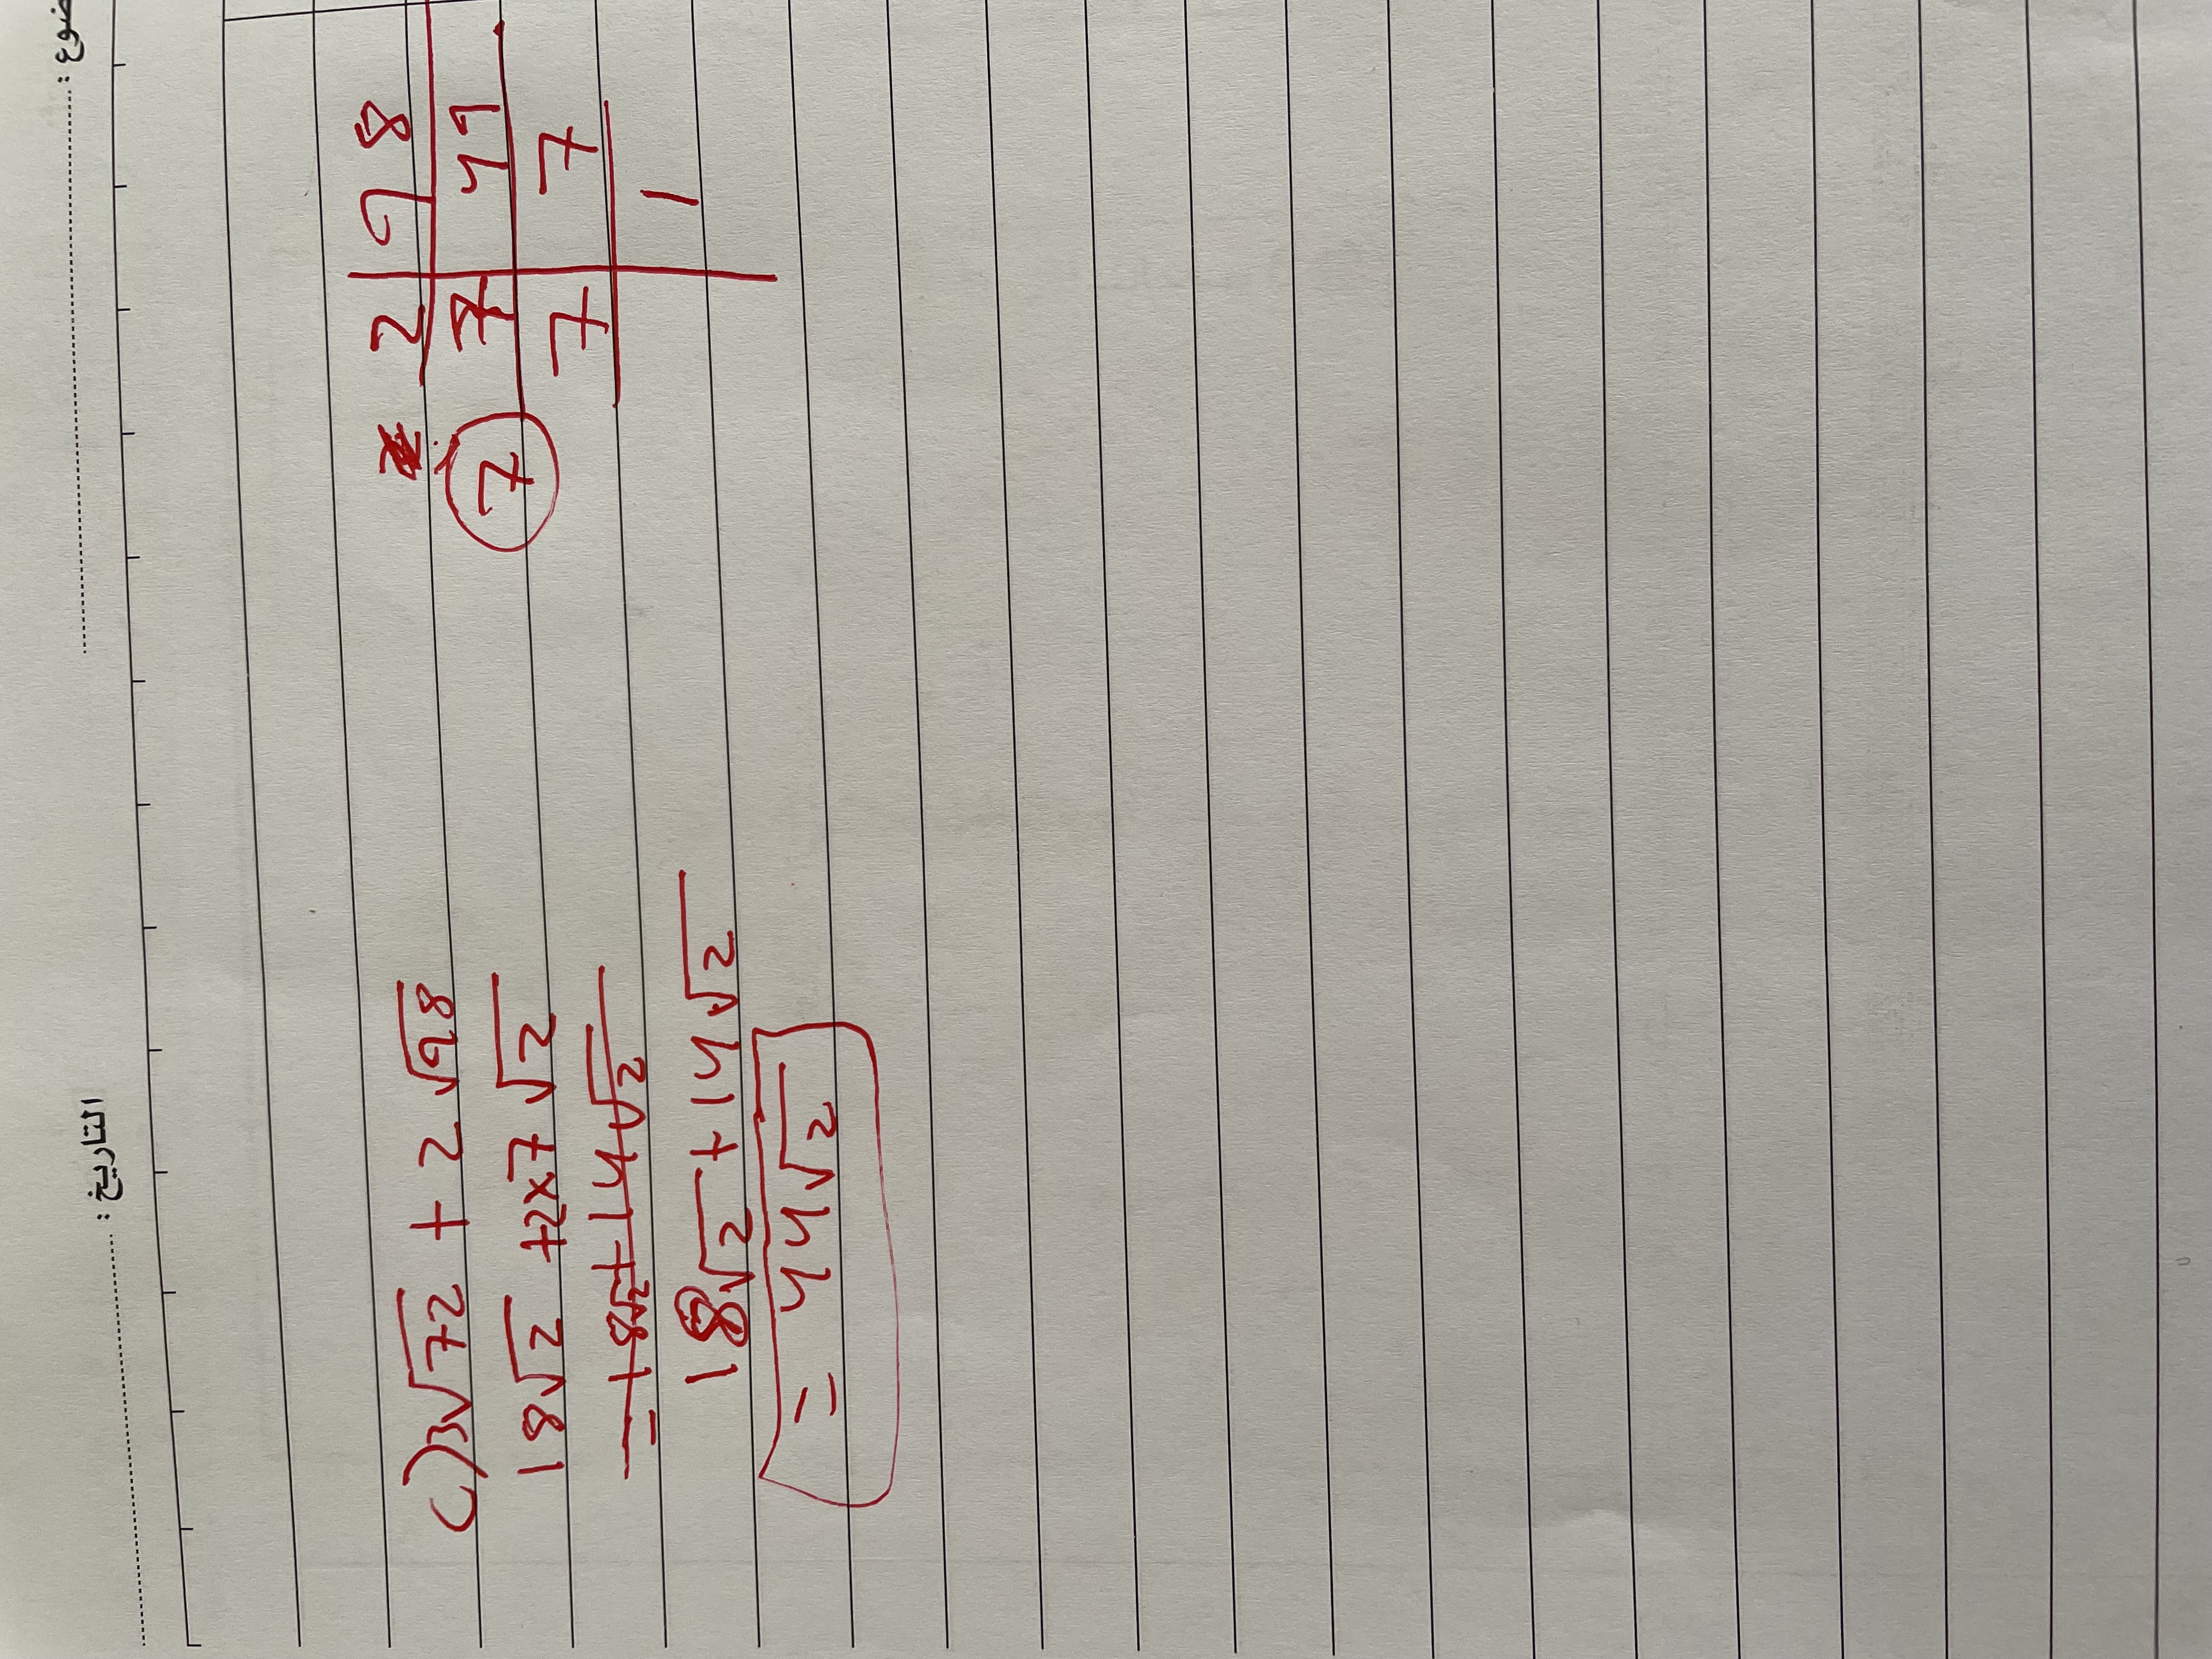 التاريخ :
ضوع :
c) 3√72 + 2√98
18√2 + 2x7√2
= 18√2 + 14√2
18√2 + 14√2
= 44√2
2 | 98
7 7 | 49
7 | 7
1